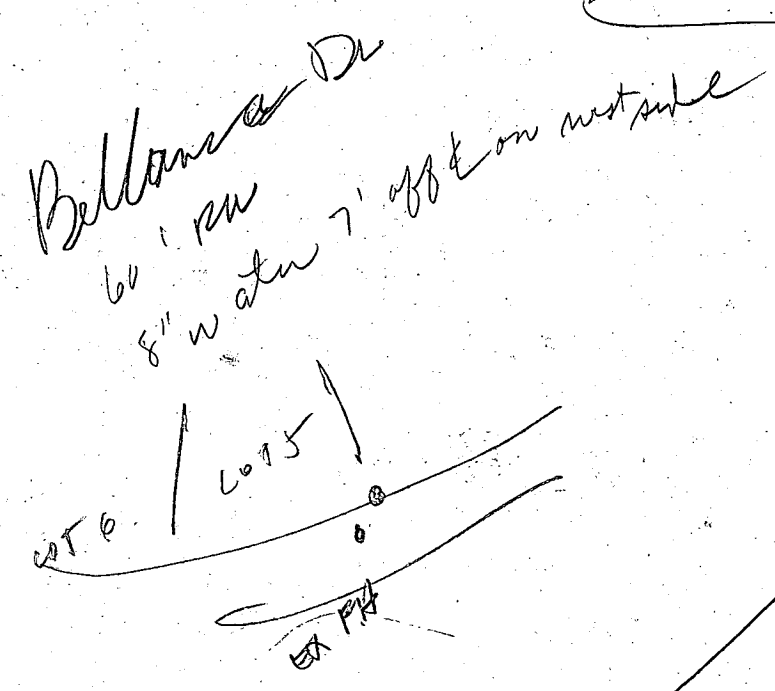 Bellanca Dr
60' RW
8" water 7' off ℄ on west side
LOT 6
LOT 5
EX FH